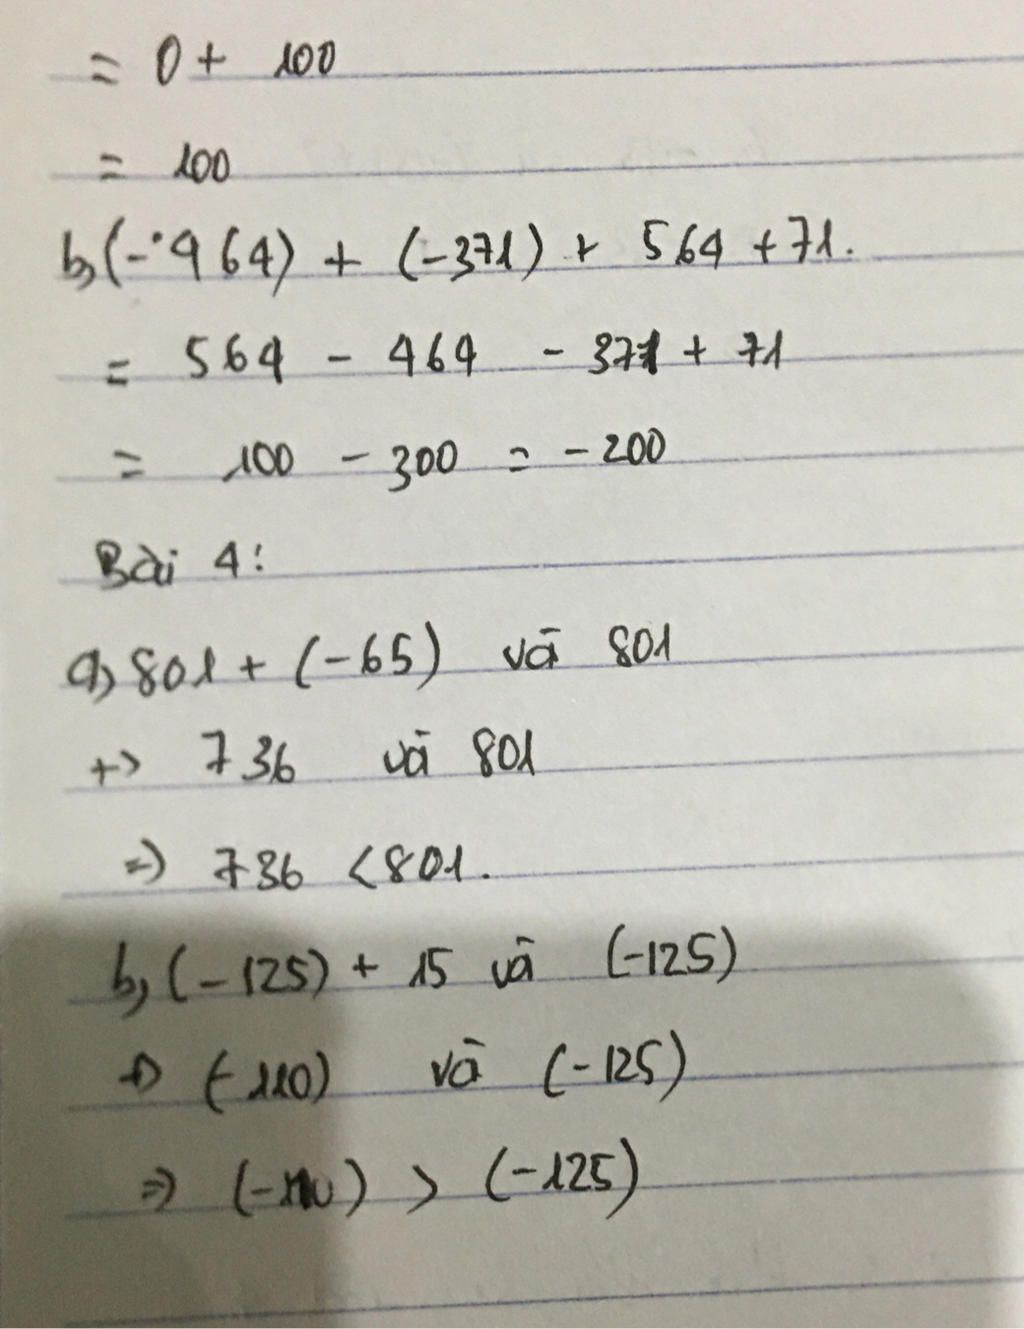 = 0 + 100
= 100
b, (-464) + (-371) + 564 + 71.
= 564 - 464 - 371 + 71
= 100 - 300 = -200
Bài 4:
a, 801 + (-65) và 801
+> 736 và 801
=> 736 < 801.
b, (-125) + 15 và (-125)
=> (-110) và (-125)
=> (-110) > (-125)